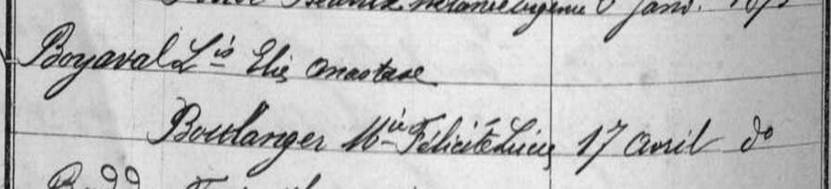 Mélanie Eugénie 6 janv. 187
Boyaval Lis Elie Anastase
Boulanger Mie Félicité Lucie 17 avril do